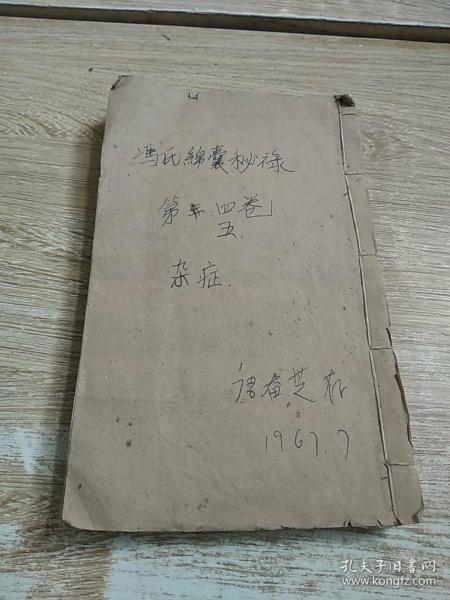 冯氏綿囊秘祿
第四卷
五
杂症.
存
1967.7
孔夫子旧书网
www.kongfz.com